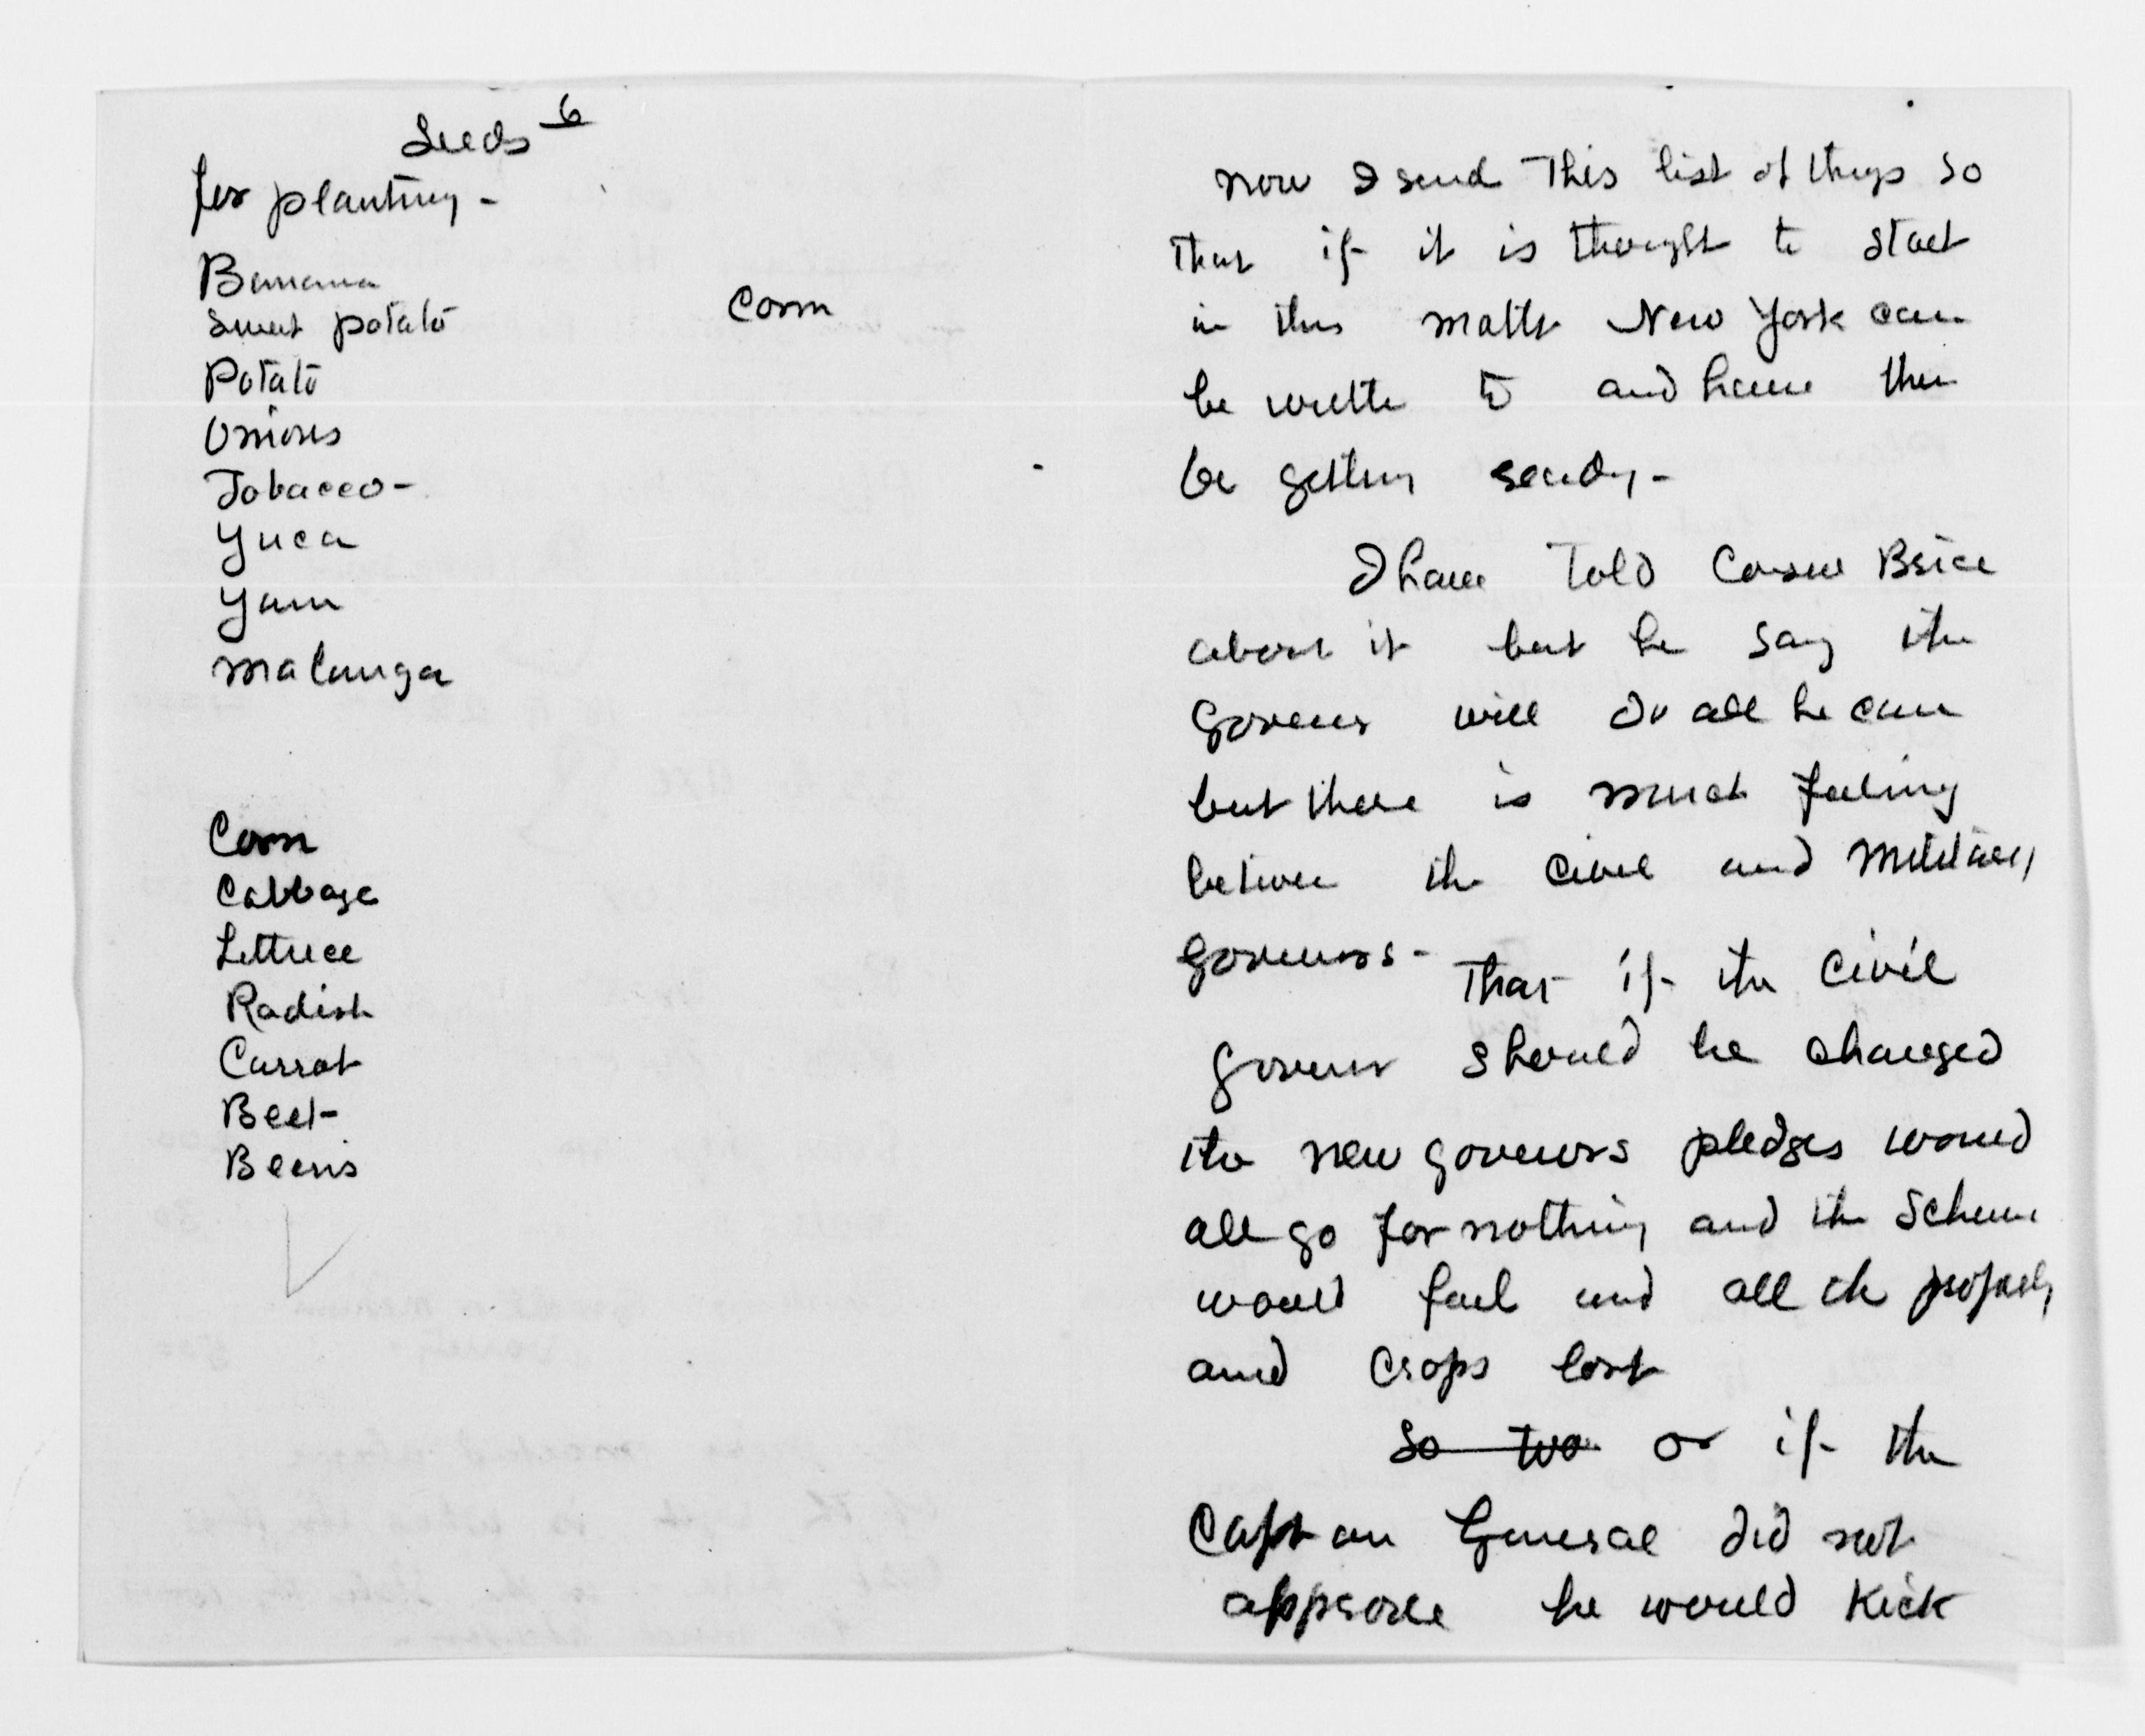 Seeds 6
for planting -
Banana
Sweet potato
Corn
Potato
Onions
Tobacco -
Yuca
Yam
malanga
Corn
Cabbage
Lettuce
Radish
Carrot
Beet -
Beans
now I send This list of things so
That if it is thought to start
in this matter New York can
be written to and have them
be getting ready -
I have Told Consul Brice
about it but he say the
Governor will do all he can
but there is much feeling
between the civil and military
governors - That if the civil
governor should be changed
the new governors pledges would
all go for nothing and the scheme
would fail and all the property
and crops lost
so too or if the
Captain General did not
approve he would Kick